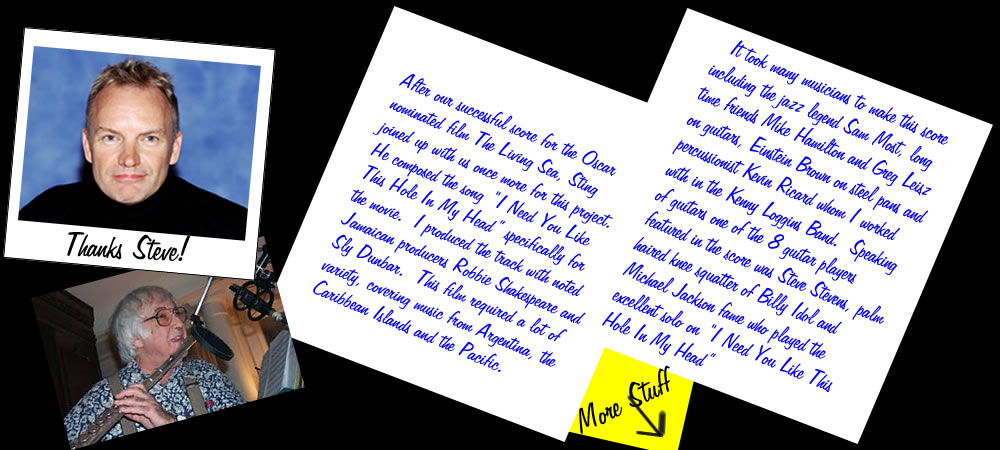 Thanks Steve!
After our successful score for the Oscar
nominated film The Living Sea, Sting
joined up with us once more for this project.
He composed the song "I Need You Like
This Hole In My Head" specifically for
the movie. I produced the track with noted
Jamaican producers Robbie Shakespeare and
Sly Dunbar. This film required a lot of
variety, covering music from Argentina, the
Caribbean Islands and the Pacific.
It took many musicians to make this score
including the jazz legend Sam Most, long
time friends Mike Hamilton and Greg Leisz
on guitars, Einstein Brown on steel pans and
percussionist Kevin Ricard whom I worked
with in the Kenny Loggins Band. Speaking
of guitars one of the 8 guitar players
featured in the score was Steve Stevens, palm
haired knee squatter of Billy Idol and
Michael Jackson fame who played the
excellent solo on "I Need You Like This
Hole In My Head"
More Stuff